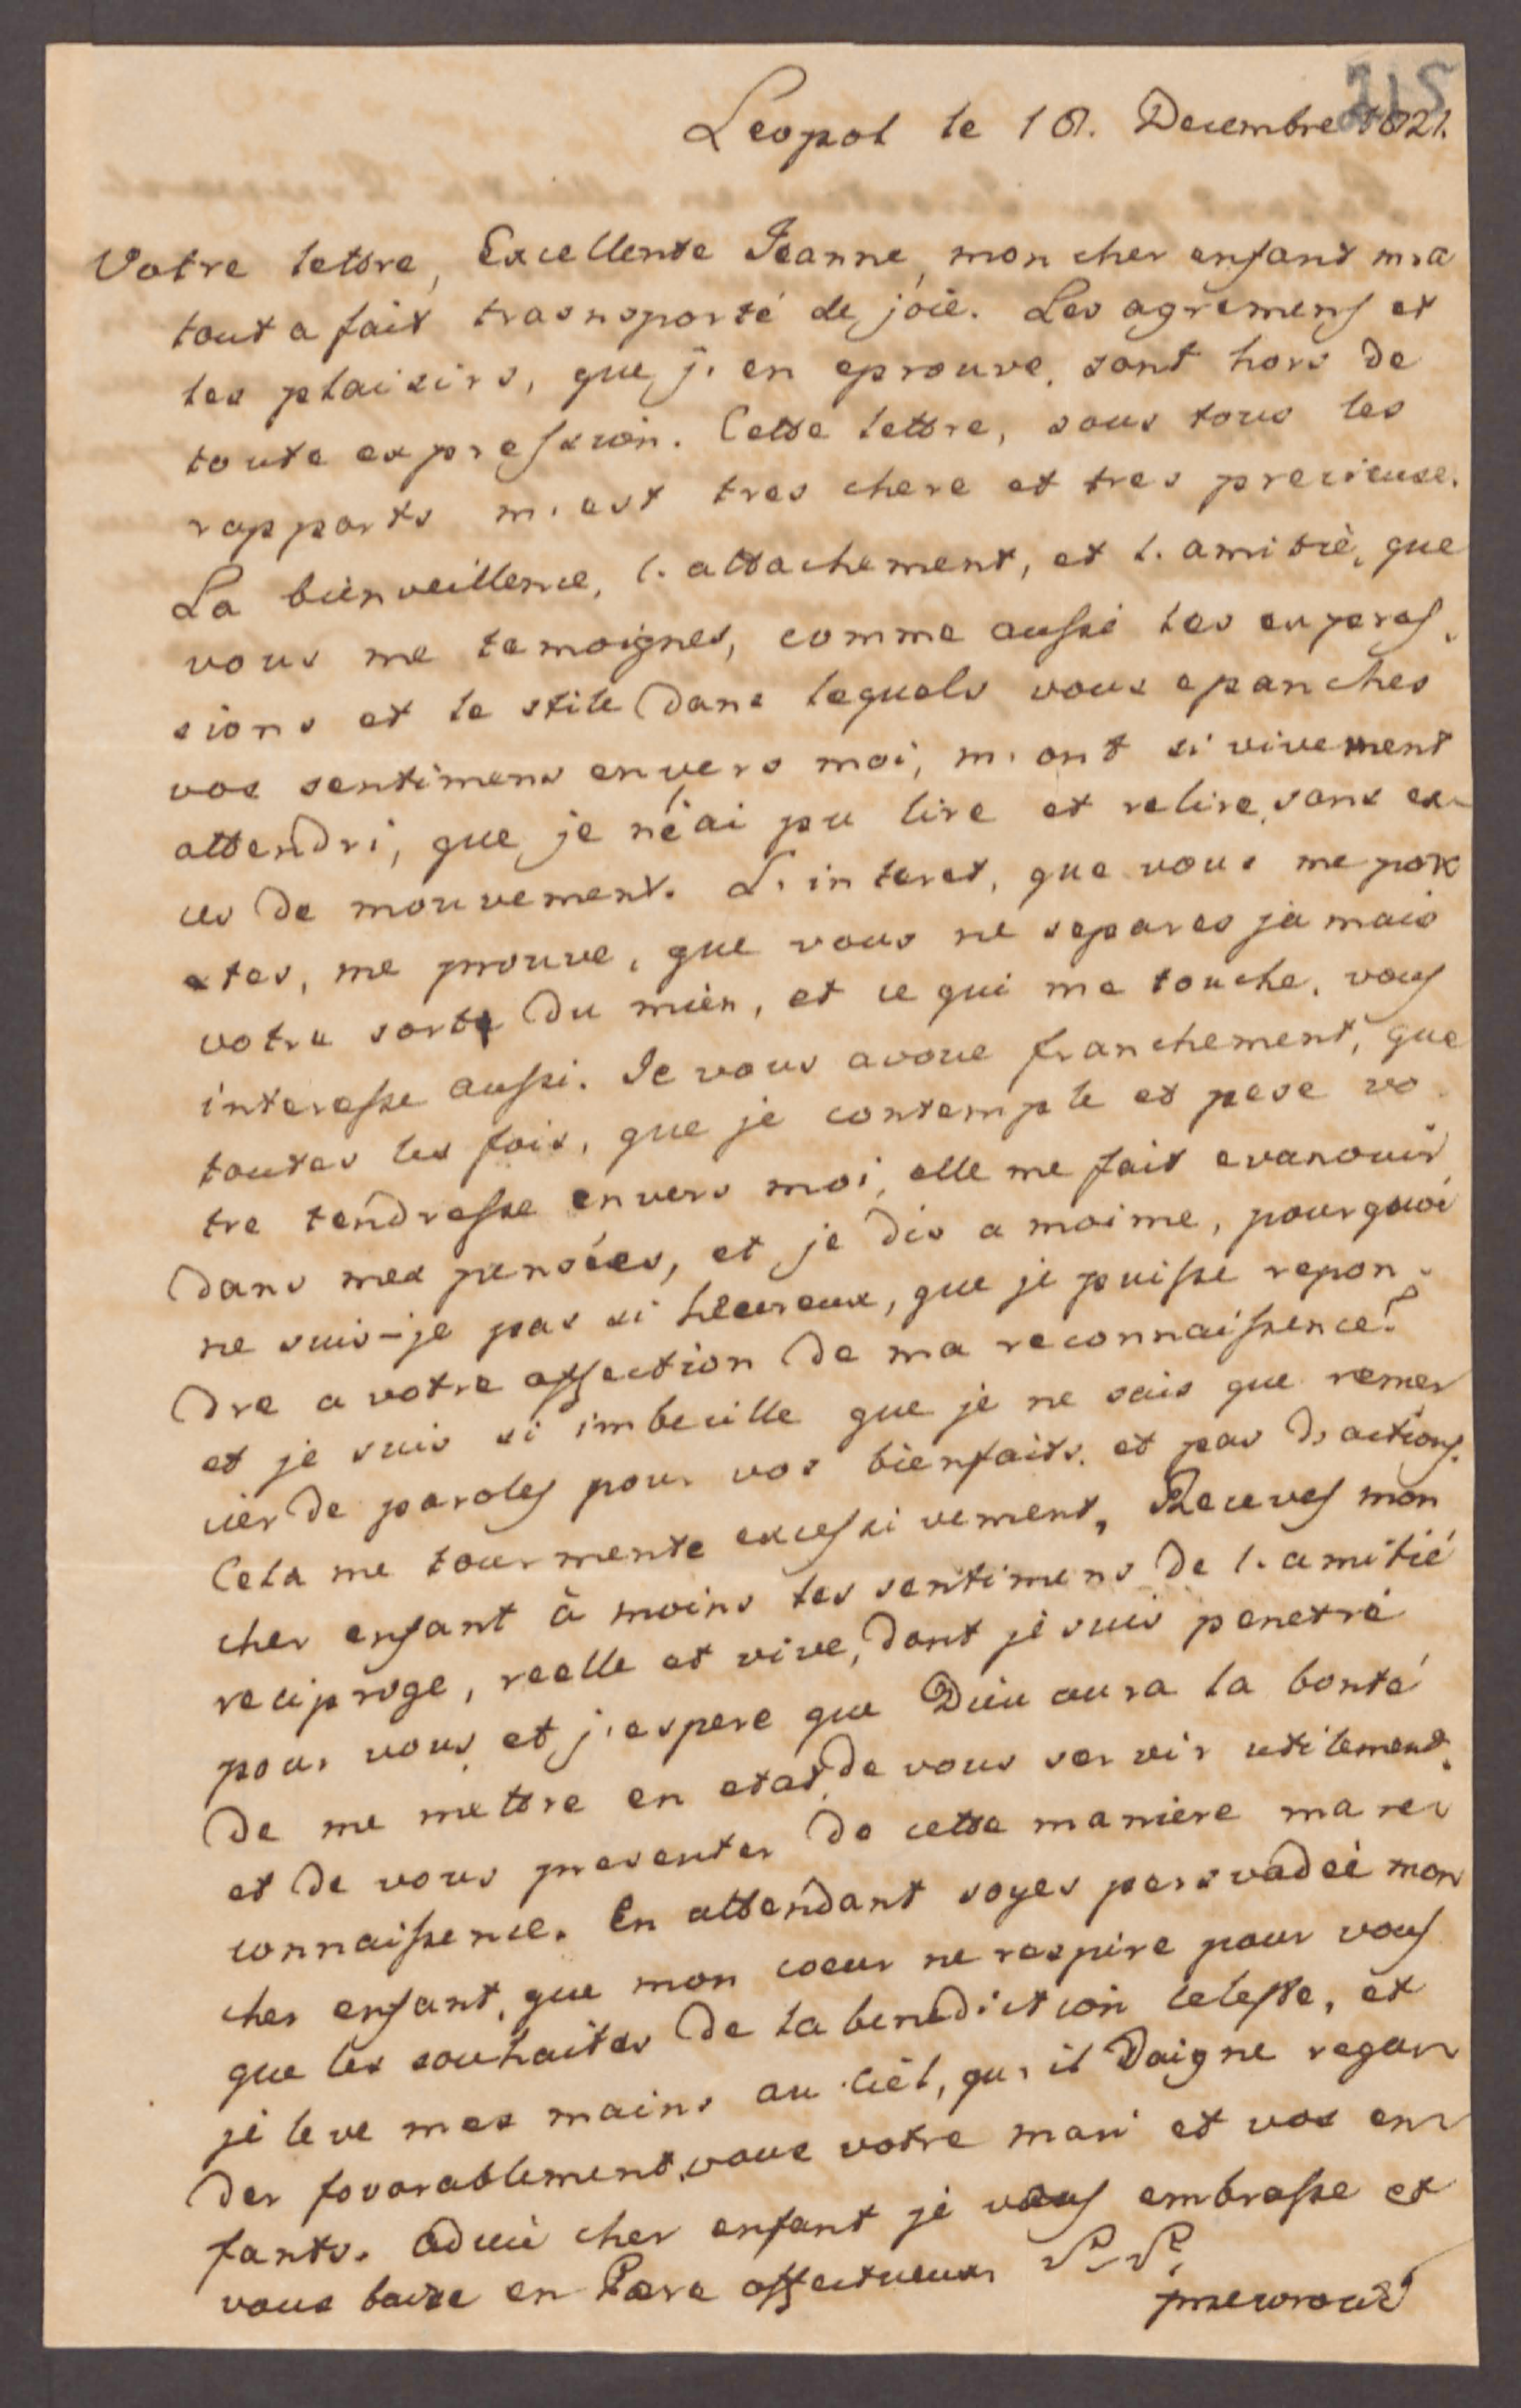 215
Leopol le 18. Decembre 1821.
Votre lettre, Excellente Jeanne, mon cher enfant m,a
tout a fait trasnsporté de joie. Les agremens et
les plaisirs, que j, en eprouve, sont hors de
toute expression. Cette lettre, sous tous les
rapports m, est tres chere et tres precieuse.
La bienveillence, l, attachement, et l, amitié, que
vous me temoignes, comme aussi les expres,
sions et le stile dans lequels vous epanches
vos sentimens envers moi, m, ont si vivement
attendri, que je n'ai pu lire et relire, sans ex-
ces de mouvement. L, interet, que vous me
tes, me prouve, que vous ne separes jamais
votre sorte du mien, et ce qui me touche, vous
interesse aussi. Je vous avoue franchement, que
toutes les fois, que je contemple et pese vo-
tre tendresse envers moi, elle me fait evanouir
dans mes pensées, et je dis a moime, pourquoi
ne suis-je pas si heureux, que je puisse repon-
dre a votre affection de ma reconnaissence?
et je suis si imbecille que je ne sais que remer
cier de paroles pour vos bienfaits, et pas d, actions.
Cela me tourmente excessivement, Receves mon
cher enfant à moins les sentimens de l, amitié
reciproge, reelle et vive, dont je suis penetré
pour vous, et j, espere que Dieu aura la bonté
de me mettre en etat, de vous servir utilement,
et de vous presenter de cette maniere ma re-
connaissence. En attendant soyes persvadeé mon
cher enfant, que mon coeur ne respire pour vous
que les souhaites de la benediction celeste, et
je leve mes mains au ciel, qu, il Daigne regar-
der favorablement, vous votre mari et vos en-
fants. Adieu cher enfant je vous embrasse et
vous baise en Pere affectueux,